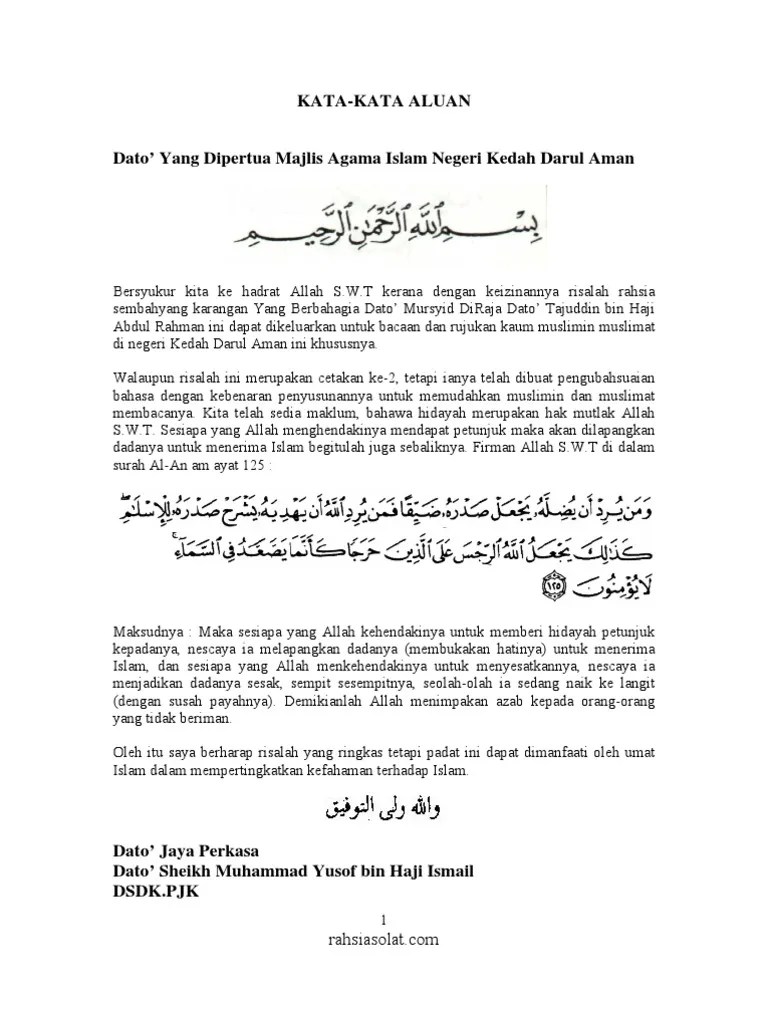 KATA-KATA ALUAN
Dato’ Yang Dipertua Majlis Agama Islam Negeri Kedah Darul Aman
بِسْمِ ٱللَّهِ ٱلرَّحْمَٰنِ ٱلرَّحِيمِ
Bersyukur kita ke hadrat Allah S.W.T kerana dengan keizinannya risalah rahsia
sembahyang karangan Yang Berbahagia Dato’ Mursyid DiRaja Dato’ Tajuddin bin Haji
Abdul Rahman ini dapat dikeluarkan untuk bacaan dan rujukan kaum muslimin muslimat
di negeri Kedah Darul Aman ini khususnya.
Walaupun risalah ini merupakan cetakan ke-2, tetapi ianya telah dibuat pengubahsuaian
bahasa dengan kebenaran penyusunannya untuk memudahkan muslimin dan muslimat
membacanya. Kita telah sedia maklum, bahawa hidayah merupakan hak mutlak Allah
S.W.T. Sesiapa yang Allah menghendakinya mendapat petunjuk maka akan dilapangkan
dadanya untuk menerima Islam begitulah juga sebaliknya. Firman Allah S.W.T di dalam
surah Al-An am ayat 125 :
وَمَن يُرِدْ أَن يُضِلَّهُۥ يَجْعَلْ صَدْرَهُۥ ضَيِّقًا فَمَن يُرِدِ ٱللَّهُ أَن يَهْدِيَهُۥ يَشْرَحْ صَدْرَهُۥ لِلْإِسْلَٰمِ ۖ
كَذَٰلِكَ يَجْعَلُ ٱللَّهُ ٱلرِّجْسَ عَلَى ٱلَّذِينَ حَرَجًا كَأَنَّمَا يَصَّعَّدُ فِى ٱلسَّمَآءِ ۚ
لَا يُؤْمِنُونَ ١٢٥
Maksudnya : Maka sesiapa yang Allah kehendakinya untuk memberi hidayah petunjuk
kepadanya, nescaya ia melapangkan dadanya (membukakan hatinya) untuk menerima
Islam, dan sesiapa yang Allah menkehendakinya untuk menyesatkannya, nescaya ia
menjadikan dadanya sesak, sempit sesempitnya, seolah-olah ia sedang naik ke langit
(dengan susah payahnya). Demikianlah Allah menimpakan azab kepada orang-orang
yang tidak beriman.
Oleh itu saya berharap risalah yang ringkas tetapi padat ini dapat dimanfaati oleh umat
Islam dalam mempertingkatkan kefahaman terhadap Islam.
والله ولى التوفيق
Dato’ Jaya Perkasa
Dato’ Sheikh Muhammad Yusof bin Haji Ismail
DSDK.PJK
1
rahsiasolat.com